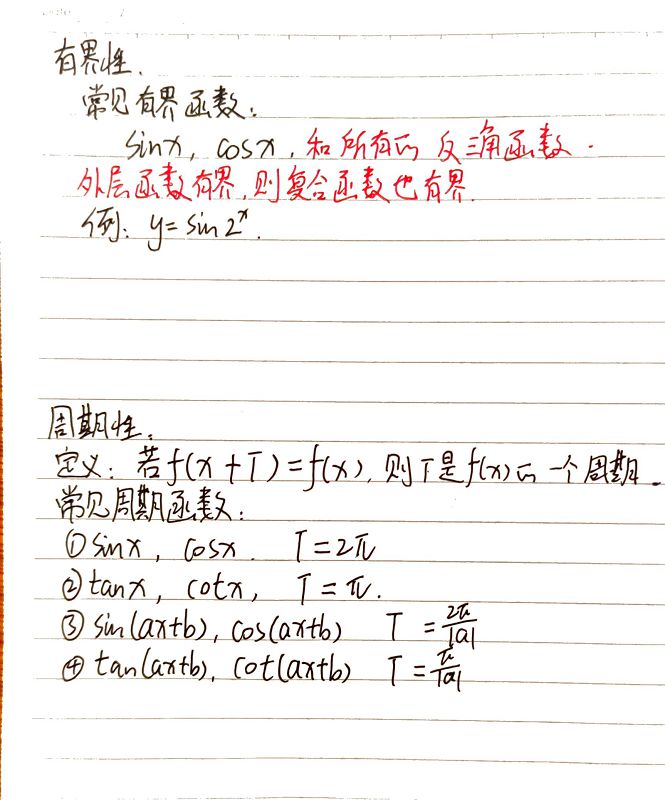 有界性.
常见有界函数:
sinx, cosx, 和所有的反三角函数.
外层函数有界,则复合函数也有界.
例: y=sin2ˣ.
周期性.
定义: 若f(x+T)=f(x),则T是f(x)的一个周期.
常见周期函数:
①sinx, cosx. T=2π
②tanx, cotx, T=π.
③sin(ax+b), cos(ax+b) T=2π/|a|
④tan(ax+b), cot(ax+b) T=π/|a|